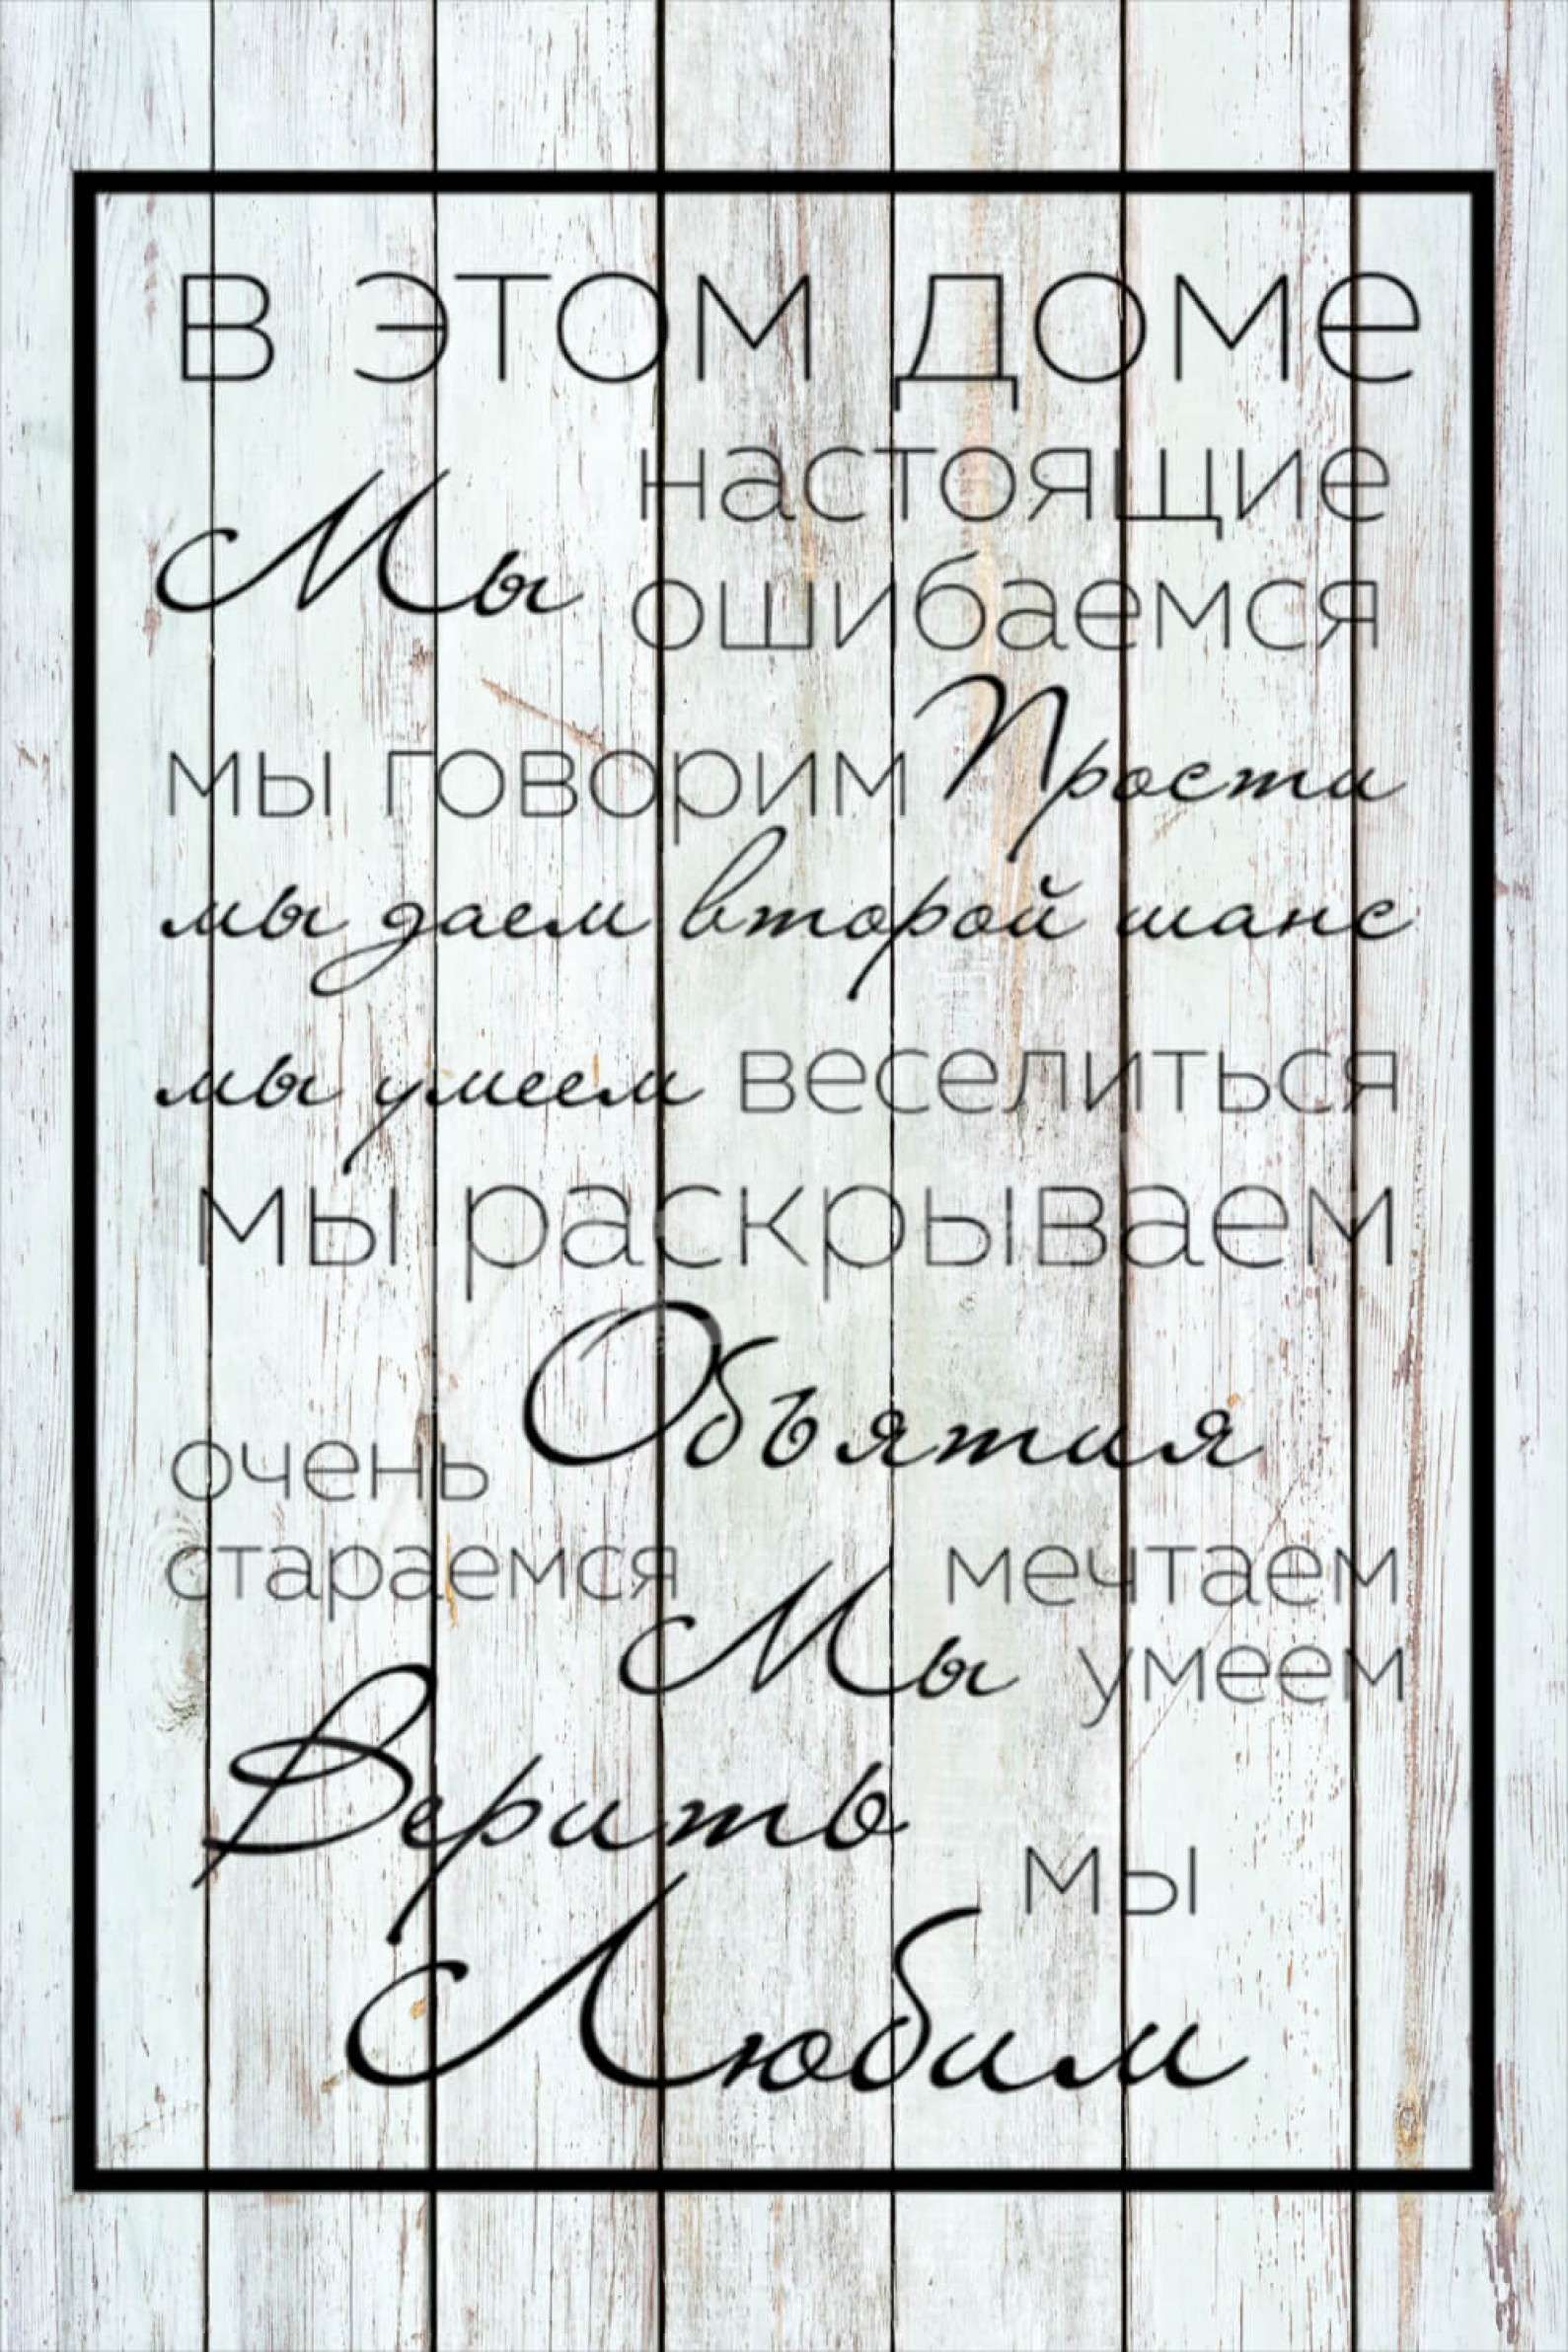 в этом доме
настоящие
Мы
ошибаемся
мы говорим Прости
мы даем второй шанс
мы умеем веселиться
мы раскрываем
Объятия
очень
стараемся
мечтаем
Мы
умеем
Верить
мы
Любим